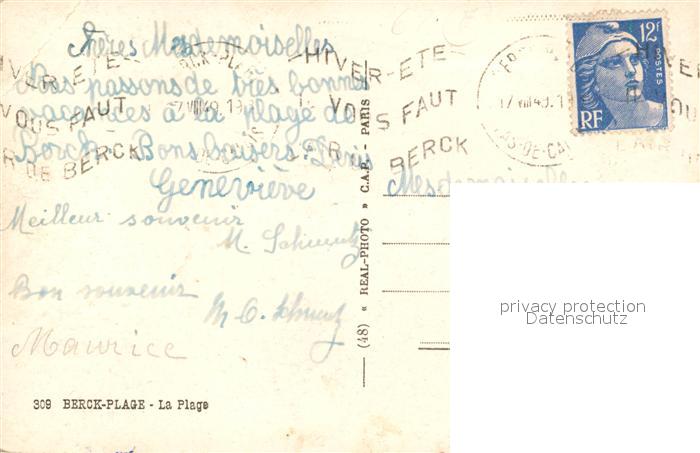 Chères Mesdemoiselles
Nas passons de très bonnes
vacances à la plage de
Berck. Bons baisers. Denis
Geneviève
Meilleur souvenir
M. Schmutz
Bon souvenir
M C. Schmutz
Maurice
309 BERCK-PLAGE - La Plage
(48) « REAL-PHOTO » C.A.P. - PARIS
Mesdemoiselles
HIVER-ETE
VOUS FAUT
R DE BERCK
BERCK-PLAGE
17 VIII 49
HIVER-ETE
VOUS FAUT
BERCK
17 VIII 49
PAS-DE-CA
12F
POSTES
RF
L'AIR
privacy protection
Datenschutz